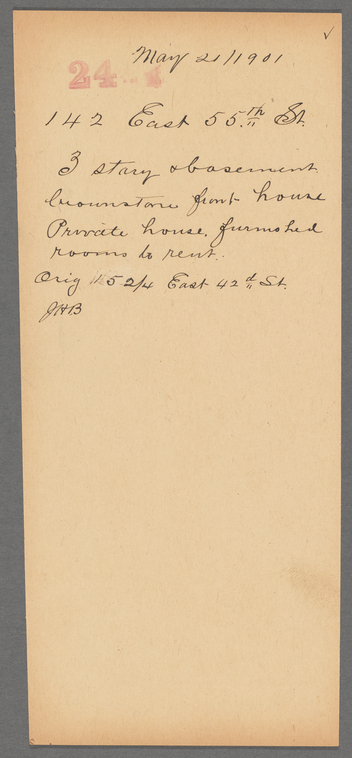 ✓
May 21/1901
24
142 East 55th St.
3 story & basement
brownstone front house
Private house. furnished
rooms to rent.
Orig 5 2/4 East 42d St.
JHB